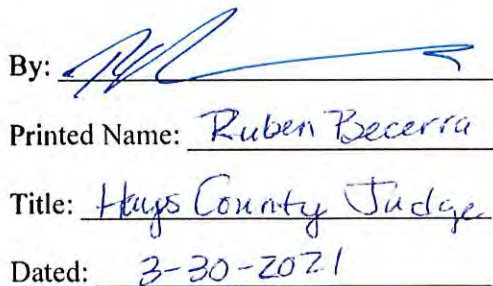 By:
Printed Name: Ruben Becerra
Title: Hays County Judge
Dated: 3-30-2021